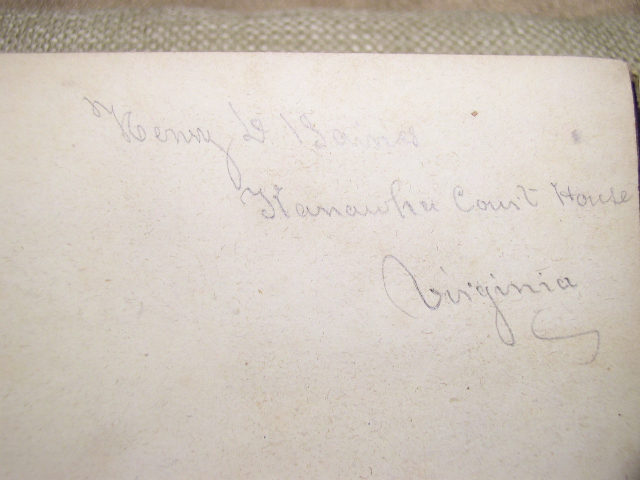 Henry D
Kanawha Court House
Virginia